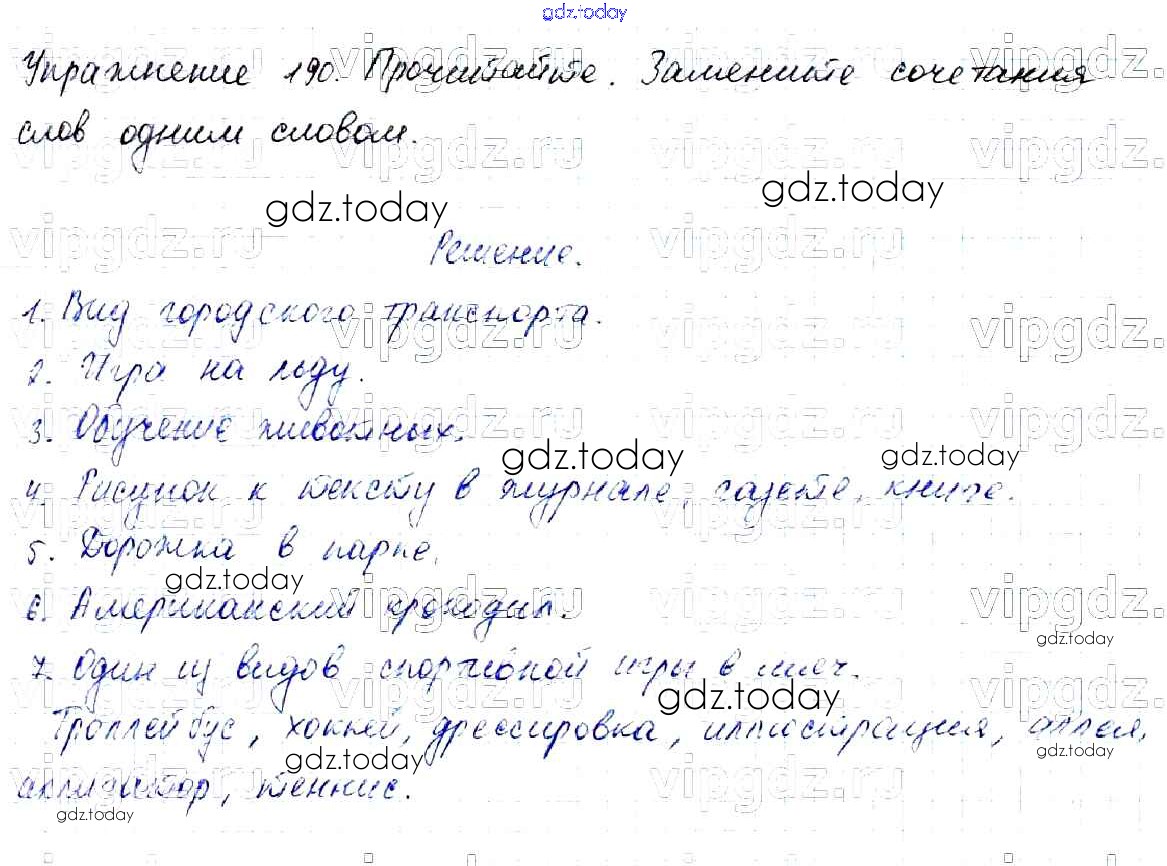 gdz.today
Упражнение 190. Прочитайте. Замените сочетания
слов одним словом.
gdz.today gdz.today
Решение.
1. Вид городского транспорта.
2. Игра на льду.
3. Обучение животных.
gdz.today gdz.today
4. Рисунок к тексту в журнале, газете, книге.
5. Дорожка в парке.
gdz.today
6. Американский крокодил.
gdz.today
7. Один из видов спортивной игры в мяч.
gdz.today
Троллейбус, хоккей, дрессировка, иллюстрация, аллея,
gdz.today gdz.today
аллигатор, теннис.
gdz.today